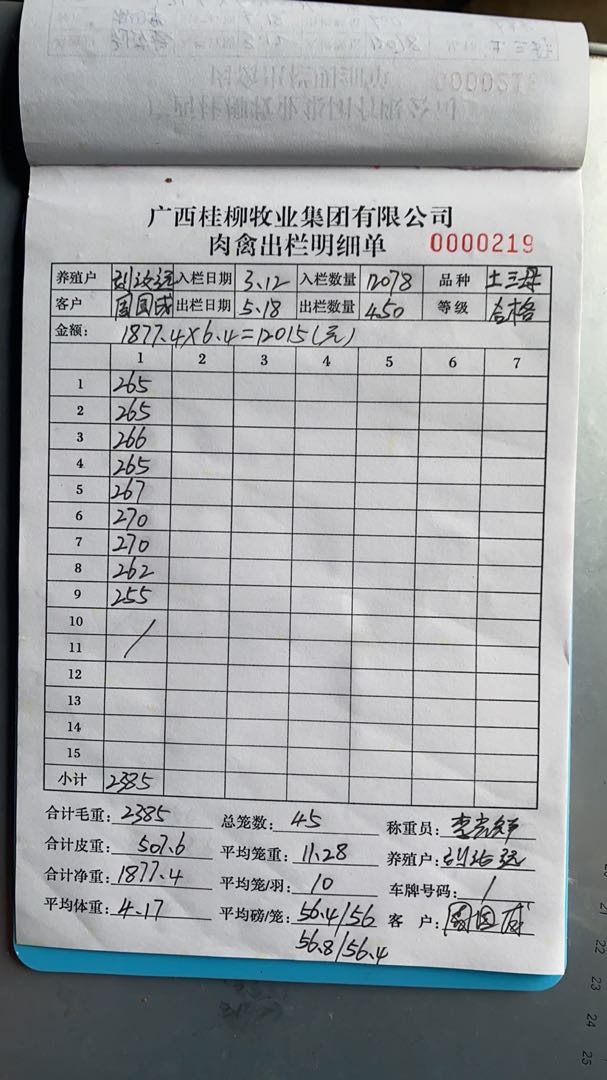 0000219
广西桂柳牧业集团有限公司
肉禽出栏明细单 0000219
养殖户 入栏日期 3.12 入栏数量 12078 品种 土三珍
客户 出栏日期 5.18 出栏数量 450 等级 合格
金额: 1877.4×6.4=12015(元)
1 2 3 4 5 6 7
1 265
2 265
3 266
4 265
5 267
6 270
7 270
8 262
9 255
10
11 /
12
13
14
15
小计 2385
合计毛重: 2385 总笼数: 45 称重员:
合计皮重: 507.6 平均笼重: 11.28 养殖户:
合计净重: 1877.4 平均笼/羽: 10 车牌号码: /
平均体重: 4.17 平均磅/笼: 56.4/56 客 户:
56.8/56.4